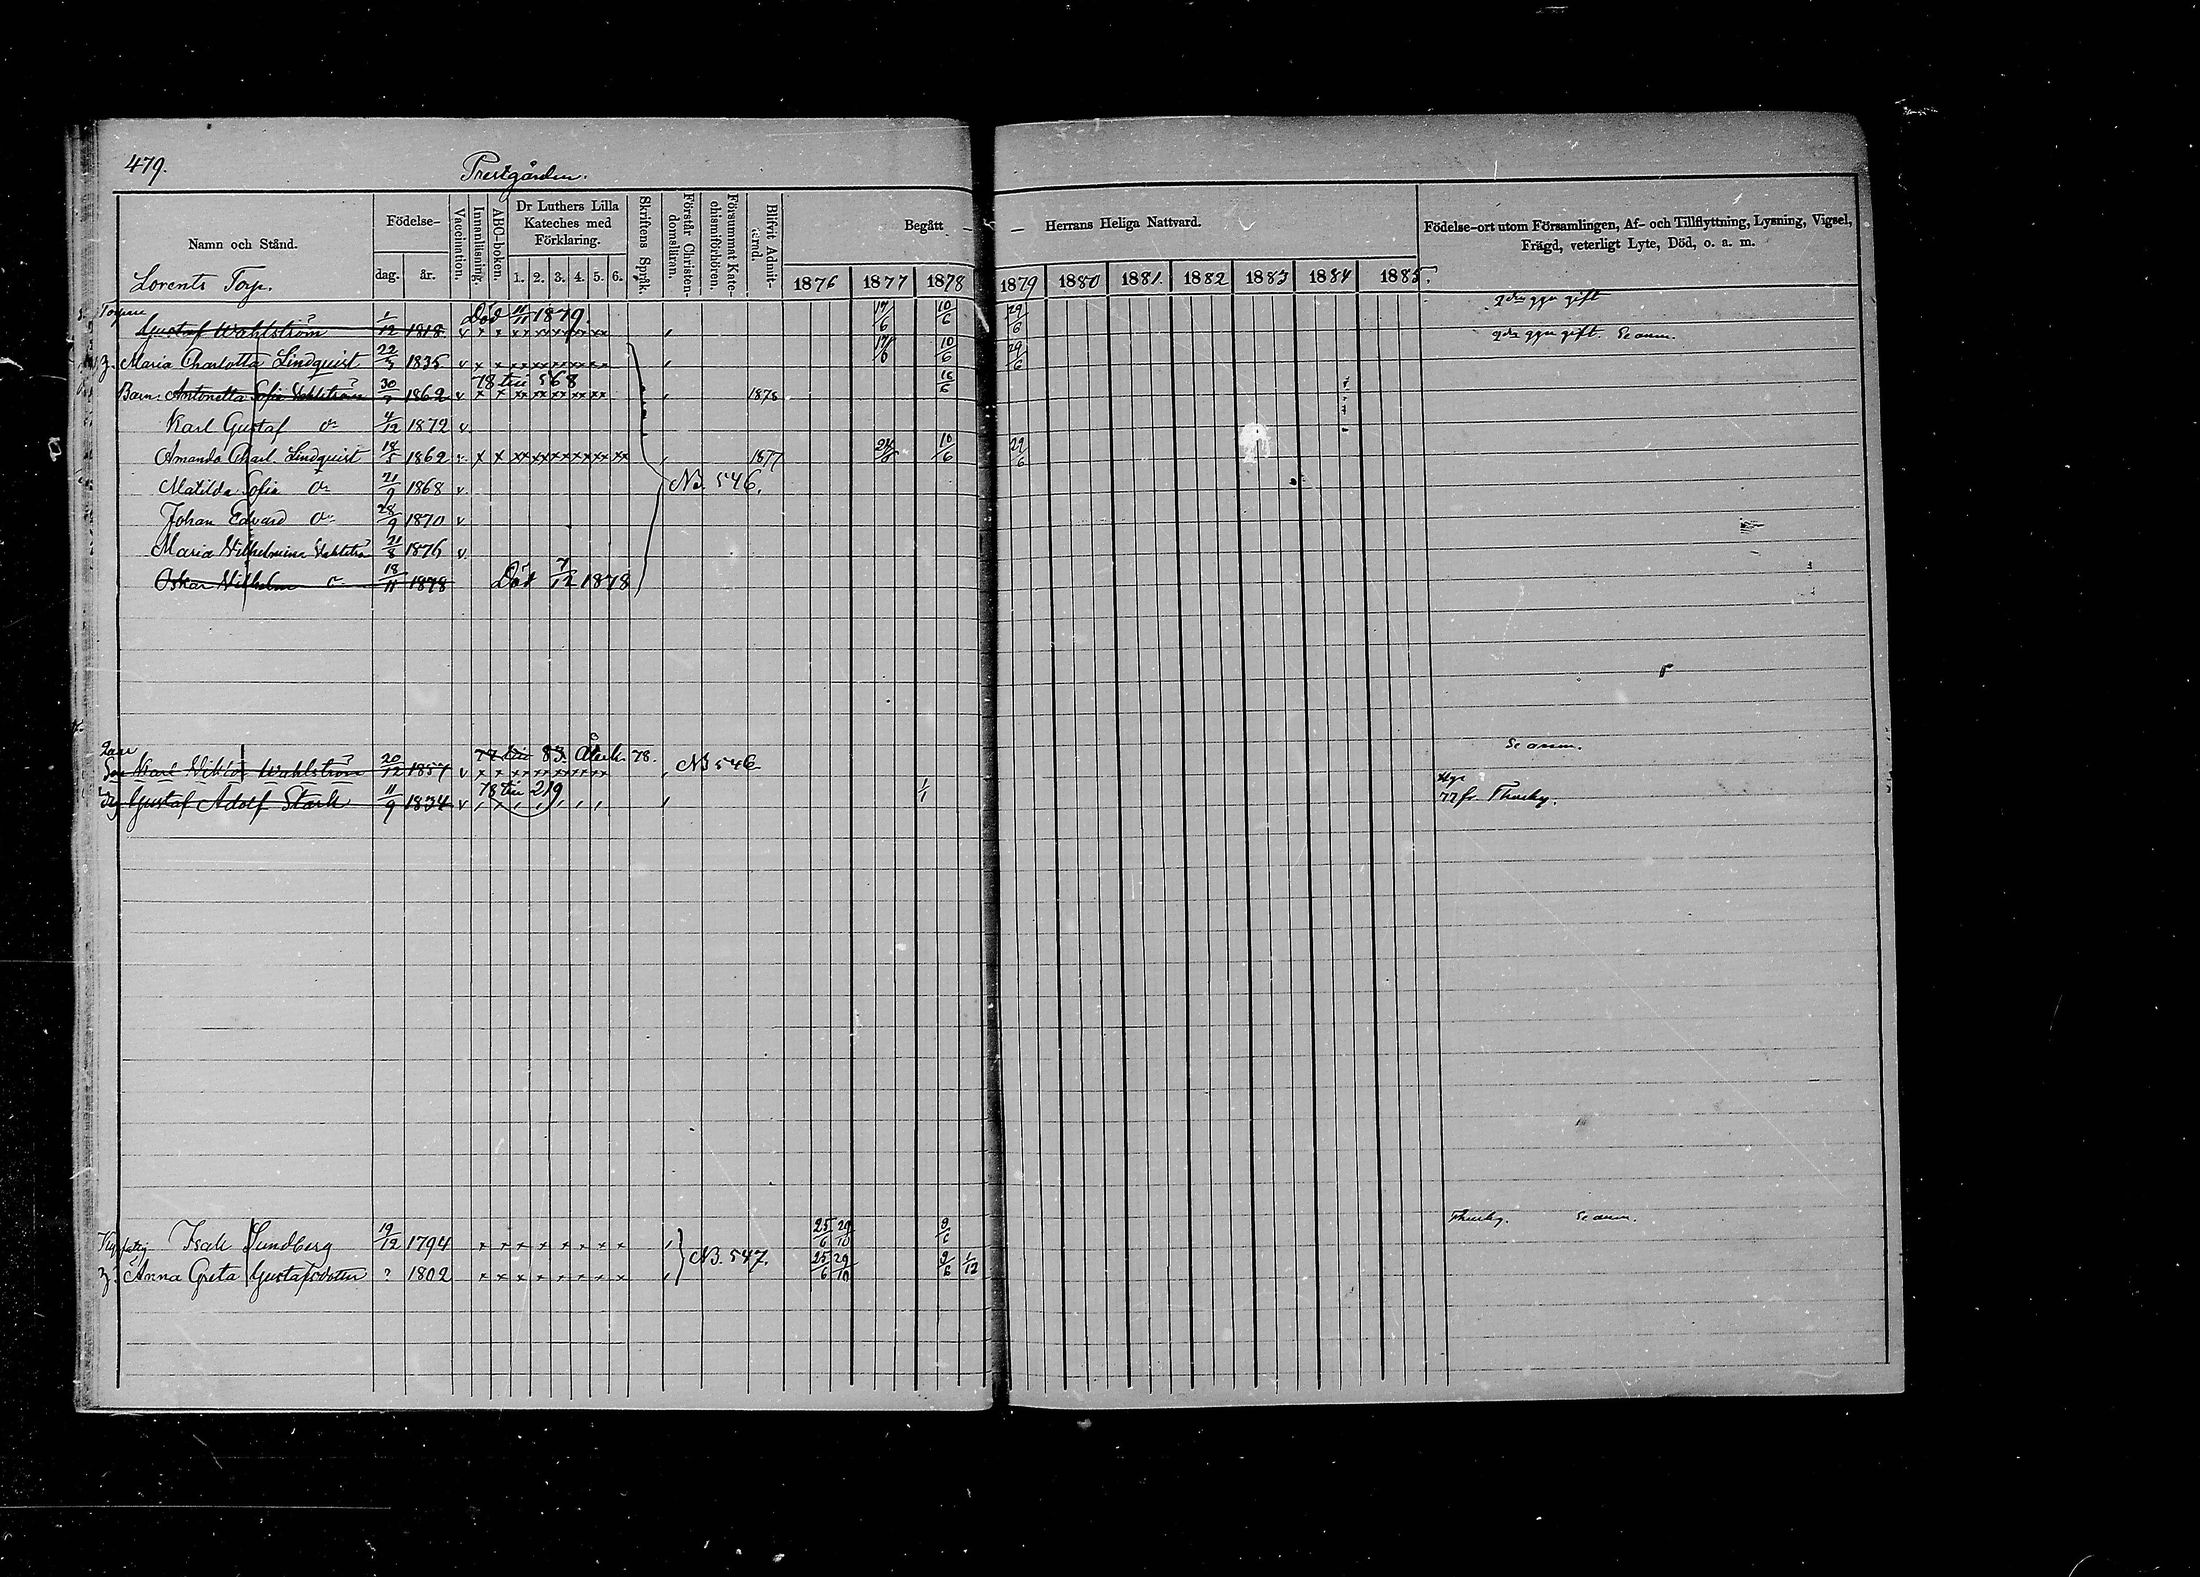 479.
Prestgården.
Namn och Stånd.
Födelse-
dag. år.
Vaccination.
Innanläsning.
ABC-boken.
Dr Luthers Lilla Kateches med Förklaring.
1. 2. 3. 4. 5. 6.
Skriftens Språk.
Förstår Christendomsläran.
Försummat Katechismiförhören.
Blifvit Admitterad.
Begått — — Herrans Heliga Nattvard.
1876 1877 1878 1879 1880 1881. 1882 1883 1884 1885.
Födelse-ort utom Församlingen, Af- och Tillflyttning, Lysning, Vigsel,
Frägd, veterligt Lyte, Död, o. a. m.
Lorents Torp.
Gustaf Wahlström 1/12 1818 v Död 11/11 1879 17/6 10/6 29/6 gift
Maria Charlotta Lindquist 1835 v 17/6 10/6 29/6 gift. Se anm.
Barn: Antonetta Sofia Wahlström 1862 v 78 till 568 1878 16/6
Karl Gustaf 4/12 1872 v.
Amanda Charl. Lindquist 1862 v. 1877 10/6 29/6
Matilda Sofia 21/9 1868 v. NB. 546.
Johan Edvard 28/9 1870 v
Maria Vilhelmina 21/8 1876 v.
Oskar Vilhelm 18/11 1878 Död 7/12 1878
Karl Viktor Wahlström 20/12 1857 v 77 till 83. Återk. 78. NB 546 Se anm.
Gustaf Adolf Stark 11/9 1834 v 78 till 219 1/1 77 fr. Thusby.
Isak Sundberg 19/12 1794 25/6 29/10 9/6 Thusby. Se anm.
Anna Greta Gustafsdotter ? 1802 NB. 547. 25/6 29/10 9/6 1/12